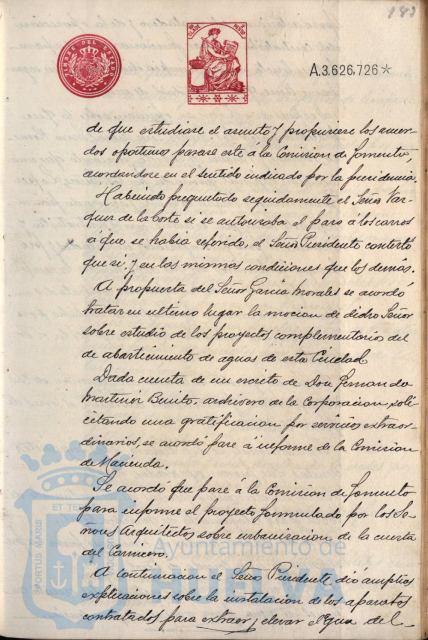 183
A.3.626.726*
de que estudiase el asunto y propusiese los acuer-
dos oportunos pasase este á la Comision de Fomento,
acordandose en el sentido indicado por la presidencia.
Habiendo preguntado seguidamente el Señor Vaz-
quez de la Corte si se autorizaba el paso á los carros
a que se habia referido, el Señor Presidente contestó
que si, y en las mismas condiciones que los demás.
A propuesta del Señor Garcia Morales se acordó
tratar en ultimo lugar la mocion de dicho Señor
sobre estudio de los proyectos complementarios del
de abastecimiento de aguas de esta Ciudad.
Dada cuenta de un escrito de Don Fernando
Martinez Benito, archivero de la Corporacion, soli-
citando una gratificacion por servicios extraor-
dinarios, se acordó pase á informe de la Comision
de Hacienda.
Se acordó que pase á la Comision de Fomento
para informe el proyecto formulado por los Se-
ñores Arquitectos sobre urbanizacion de la cuesta
del Carnicero.
A continuacion el Señor Presidente dió amplias
explicaciones sobre la instalacion de los aparatos
contratados para extraer y elevar el agua del
PORTUS MARIS ET TE
Ayuntamiento de